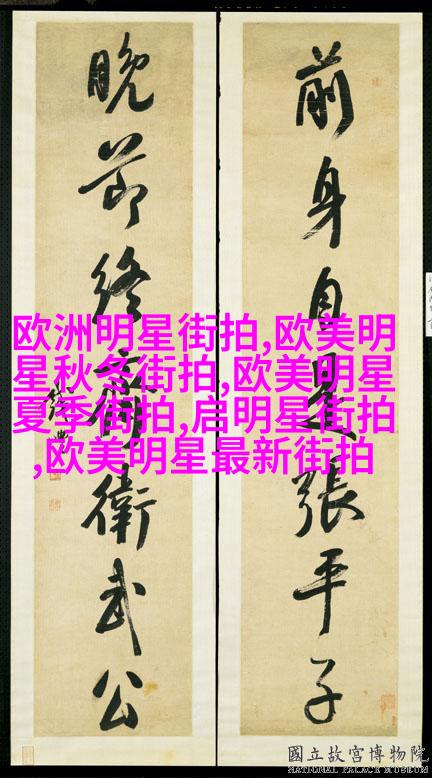 前身自是張平子
晚節終衛武公
欧洲明星街拍,欧美明
星秋冬街拍,欧美明星
夏季街拍,启明星街拍
,欧美明星最新街拍
國立故宮博物院
NATIONAL PALACE MUSEUM